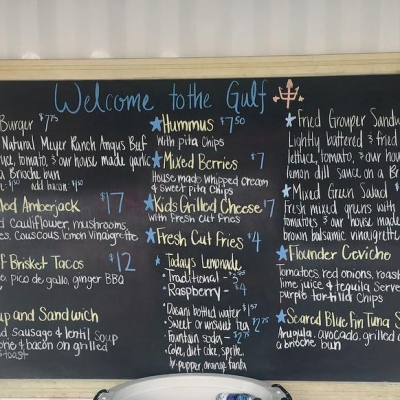 Welcome to the Gulf
Burger $7.75
Natural Meyer Ranch Angus Beef
tomato, & our house made garlic
a brioche bun
$1.50 add bacon $1.50
Amberjack $17
cauliflower, mushrooms,
couscous, lemon vinaigrette
Brisket Tacos $12
pico de gallo, ginger BBQ
up and Sandwich
sausage & lentil soup
& bacon on grilled
toast
Hummus $7.50
with pita chips
Mixed Berries $7
House made whipped cream
& sweet pita chips
Kids Grilled Cheese $7
with fresh cut fries
Fresh Cut Fries $4
Today's Lemonade
- Traditional -
- Raspberry - $4
- Dasani bottled water
- Sweet or unsweet tea $2.75
- Fountain soda -
- Coke, diet coke, sprite,
pepper, orange fanta
Fried Grouper Sandw
Lightly battered & fried
lettuce, tomato, & our hou
lemon dill sauce on a Br
Mixed Green Salad $
Fresh mixed greens with
tomatoes & our house made
brown balsamic vinaigrette
Flounder Ceviche
Tomatoes, red onions, roast
lime juice & tequila. Serve
purple tortilla chips
Seared Blue Fin Tuna S
Arugula, avocado, grilled
a brioche bun